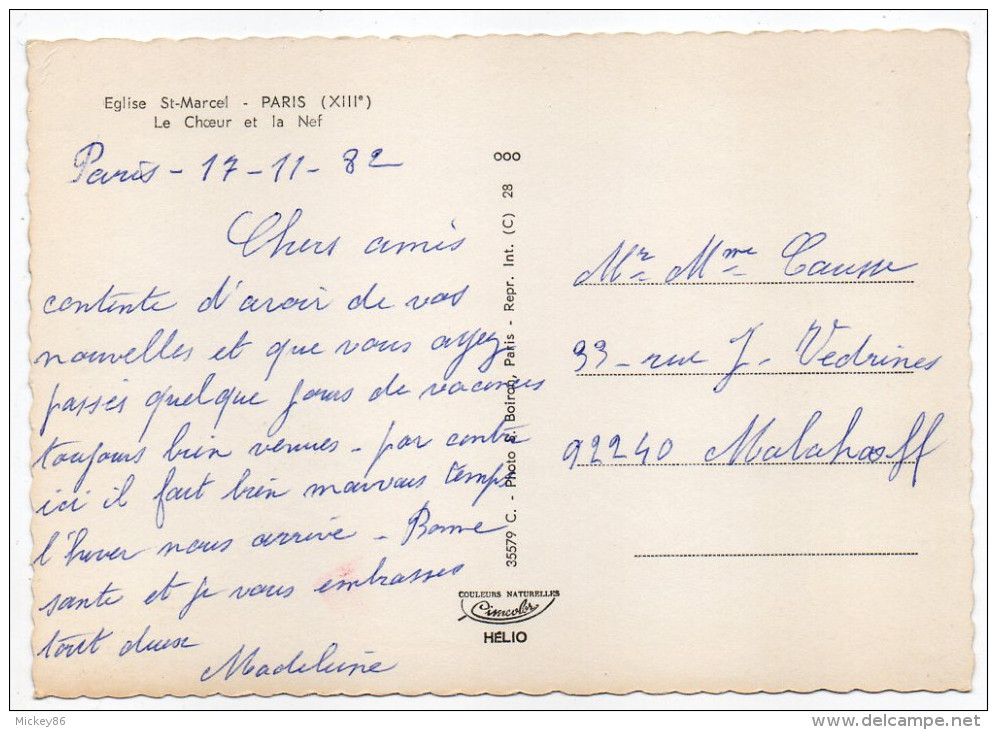 Eglise St-Marcel - PARIS (XIIIe)
Le Chœur et la Nef
Paris - 17 - 11 - 82
Chers amis
contente d'avoir de vos
nouvelles et que vous ayez
passés quelque jours de vacances
toujours bien venues - par contre
ici il fait bien mauvais temps
l'hiver nous arrive - Bonne
sante et je vous embrasses
tout deux
Madeleine
ooo
35579 C. - Photo S. Boiron, Paris - Repr. Int. (C) 28
COULEURS NATURELLES
Cimcolor
HÉLIO
Mr Mme Causse
33 - rue J. Vedrines
92240 Malahoff
Mickey86
www.delcampe.net